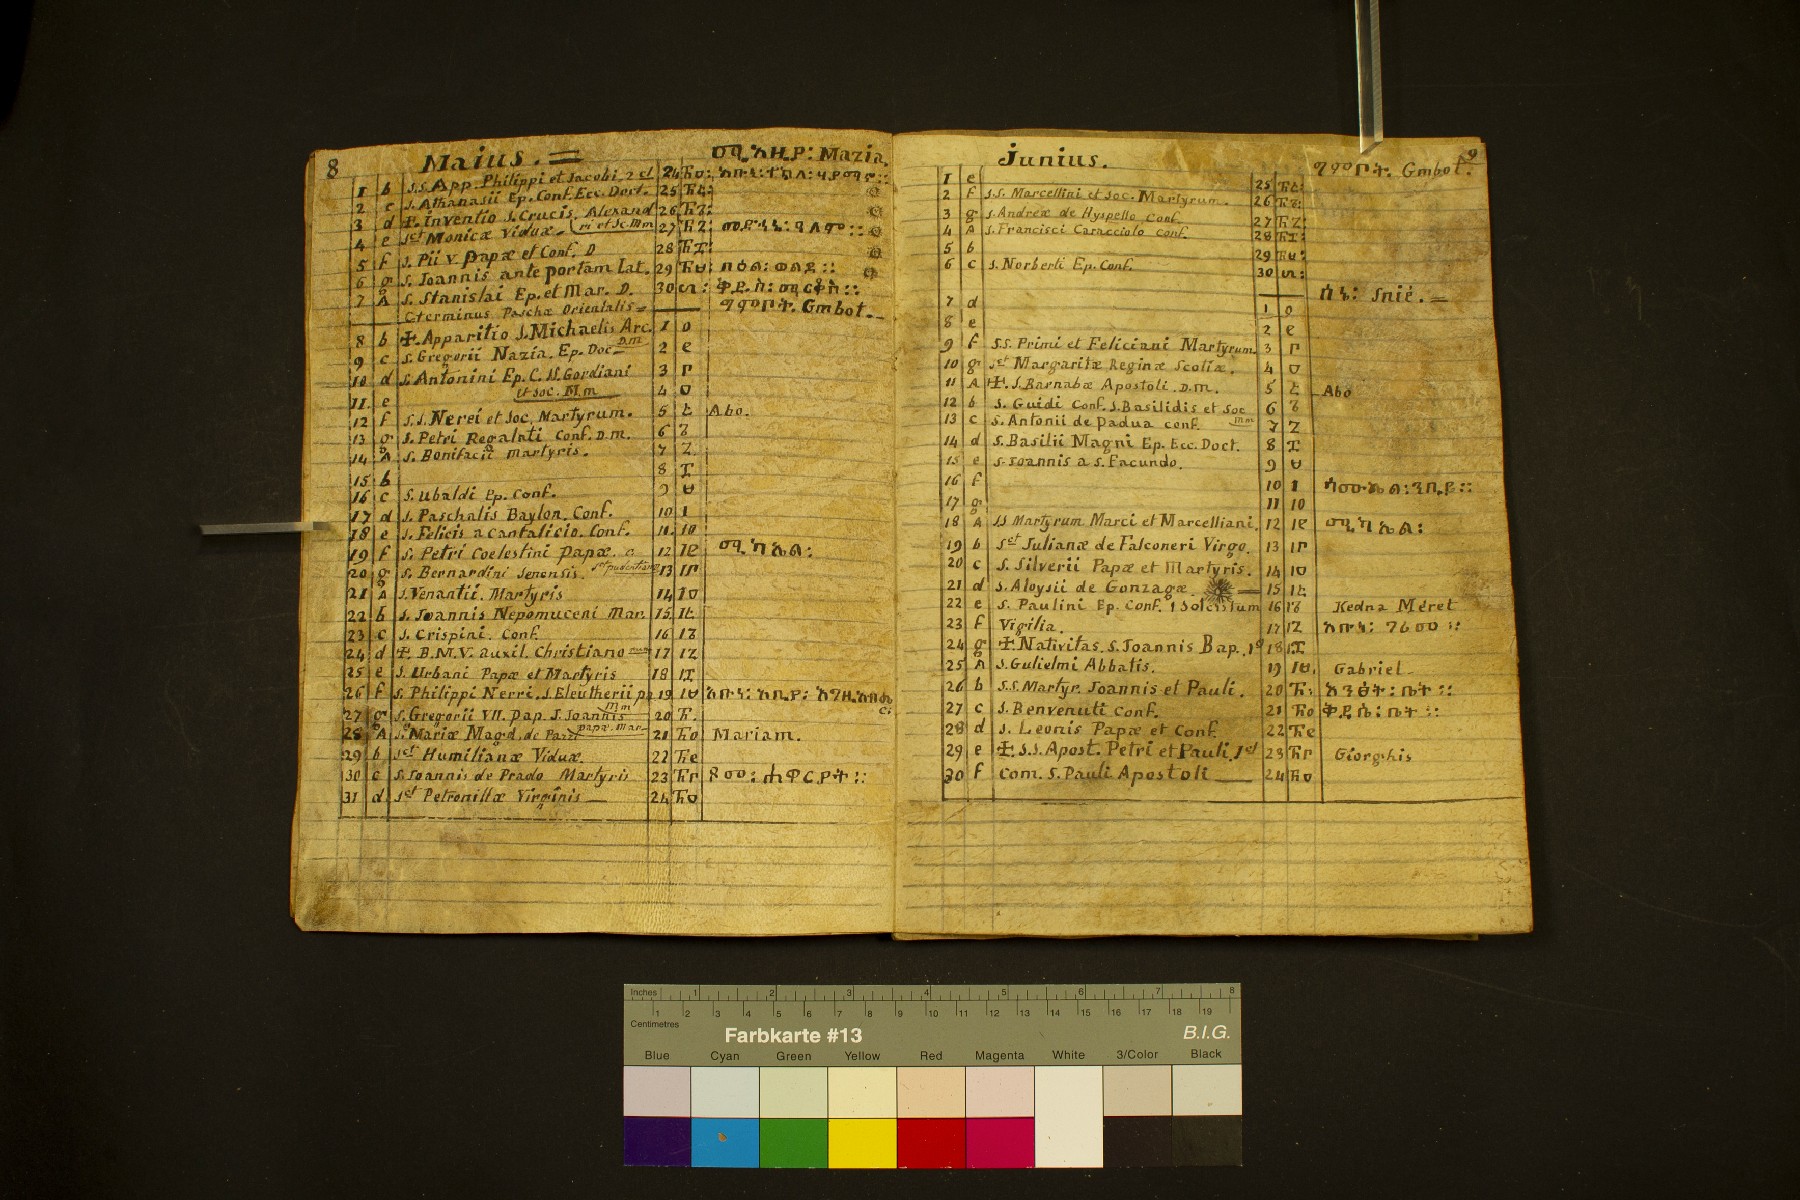 8 Maius. = ሚአዚያ: Mazia.
1 b S.S. App. Philippi et Jacobi. 2 cl 24 ፳፬:
2 c S. Athanasii Ep. Conf. Ecc. Doct. 25 ፳፭:
3 d ✠. Inventio S. Crucis. Alexand 26 ፳፮:
ri et Sc. Mm
4 e Sct Monicæ Viduæ 27 ፳፯: መድኃኔ: ዓለም::
5 f S. Pii V. Papæ et Conf. D 28 ፳፰:
6 g S. Joannis ante portam Lat. 29 ፳፱: በዕል: ወልድ::
7 A S. Stanislai Ep. et Mar. D. 30 ፴: ቅዱስ: ማርቆስ::
C terminus Paschæ Orientalis = ግምቦት. Gmbot._
8 b ✠. Apparitio S. Michaelis Arc. 1 ፩
D.m
9 c S. Gregorii Nazia. Ep. Doc_ 2 ፪
10 d S. Antonini Ep. C. SS. Gordiani 3 ፫
et soc. M.m
11 e 4 ፬
12 f S.S. Nerei et Soc. Martyrum. 5 ፭ Abo.
13 g S. Petri Regalati Conf. D.m. 6 ፮
14 A S. Bonifacii Martyris. 7 ፯
15 b 8 ፰
16 c S. Ubaldi Ep. Conf. 9 ፱
17 d S. Paschalis Baylon. Conf. 10 ፲
18 e S. Felicis a Cantalicio. Conf. 11 ፲፩
19 f S. Petri Coelestini Papæ. 12 ፲፪ ሚካኤል:
20 g S. Bernardini Senensis. 13 ፲፫
21 A S. Venantii. Martyris 14 ፲፬
22 b S. Joannis Nepomuceni Mar. 15 ፲፭
23 c S. Crispini. Conf. 16 ፲፮
24 d ✠. B.M.V. auxil. Christiano 17 ፲፯
25 e S. Urbani Papæ et Martyris 18 ፲፰
26 f S. Philippi Nerri. S. Eleutherii pp 19 ፲፱
M m
27 g S. Gregorii VII. Pap. S. Joannis 20 ፳.
papæ. Mar
28 A S. Mariæ Magd. de Pazzi 21 ፳፩ Mariam.
29 b Sct Humilianæ Viduæ. 22 ፳፪
30 c S. Joannis de Prado Martyris 23 ፳፫
31 d Sct Petronillæ Virginis _ 24 ፳፬
9
Junius. ግምቦት. Gmbot.
1 e 25 ፳፭:
2 f S.S. Marcellini et Soc. Martyrum. 26 ፳፮:
3 g S. Andreæ de Hyspello Conf. 27 ፳፯:
4 A S. Francisci Caracciolo Conf. 28 ፳፰:
5 b 29 ፳፱:
6 c S. Norberti Ep. Conf. 30 ፴:
ሰኔ: Snié. _
7 d 1 ፩
8 e 2 ፪
9 f S.S. Primi et Feliciani Martyrum. 3 ፫
10 g Sct Margaritæ Reginæ Scotiæ. 4 ፬
11 A ✠. S. Barnabæ Apostoli. D.m. 5 ፭ Abo
12 b S. Guidi Conf. S. Basilidis et Soc 6 ፮
mm
13 c S. Antonii de Padua Conf. 7 ፯
14 d S. Basilii Magni Ep. Ecc. Doct. 8 ፰
15 e S. Joannis a S. Facundo. 9 ፱
16 f 10 ፲
17 g 11 ፲፩
18 A SS Martyrum Marci et Marcelliani. 12 ፲፪ ሚካኤል:
19 b Sct Julianæ de Falconeri Virgo. 13 ፲፫
20 c S. Silverii Papæ et Martyris. 14 ፲፬
21 d S. Aloysii de Gonzagæ 15 ፲፭
22 e S. Paulini Ep. Conf. Solcistum 16 ፲፮ Kedna Méret
23 f Vigilia. 17 ፲፯
24 g ✠ Nativitas. S. Joannis Bap. 18 ፲፰
25 A S. Gulielmi Abbatis. 19 ፲፱. Gabriel
26 b S.S. Martyr. Joannis et Pauli. 20 ፳:
27 c S. Benvenuti Conf. 21 ፳፩
28 d S. Leonis Papæ et Conf. 22 ፳፪
29 e ✠. S.S. Apost. Petri et Pauli. 1 cl 23 ፳፫ Giorghis
30 f Com. S. Pauli Apostoli ___ 24 ፳፬
Inches 1 2 3 4 5 6 7 8
Centimetres 1 2 3 4 5 6 7 8 9 10 11 12 13 14 15 16 17 18 19
Farbkarte #13 B.I.G.
Blue Cyan Green Yellow Red Magenta White 3/Color Black